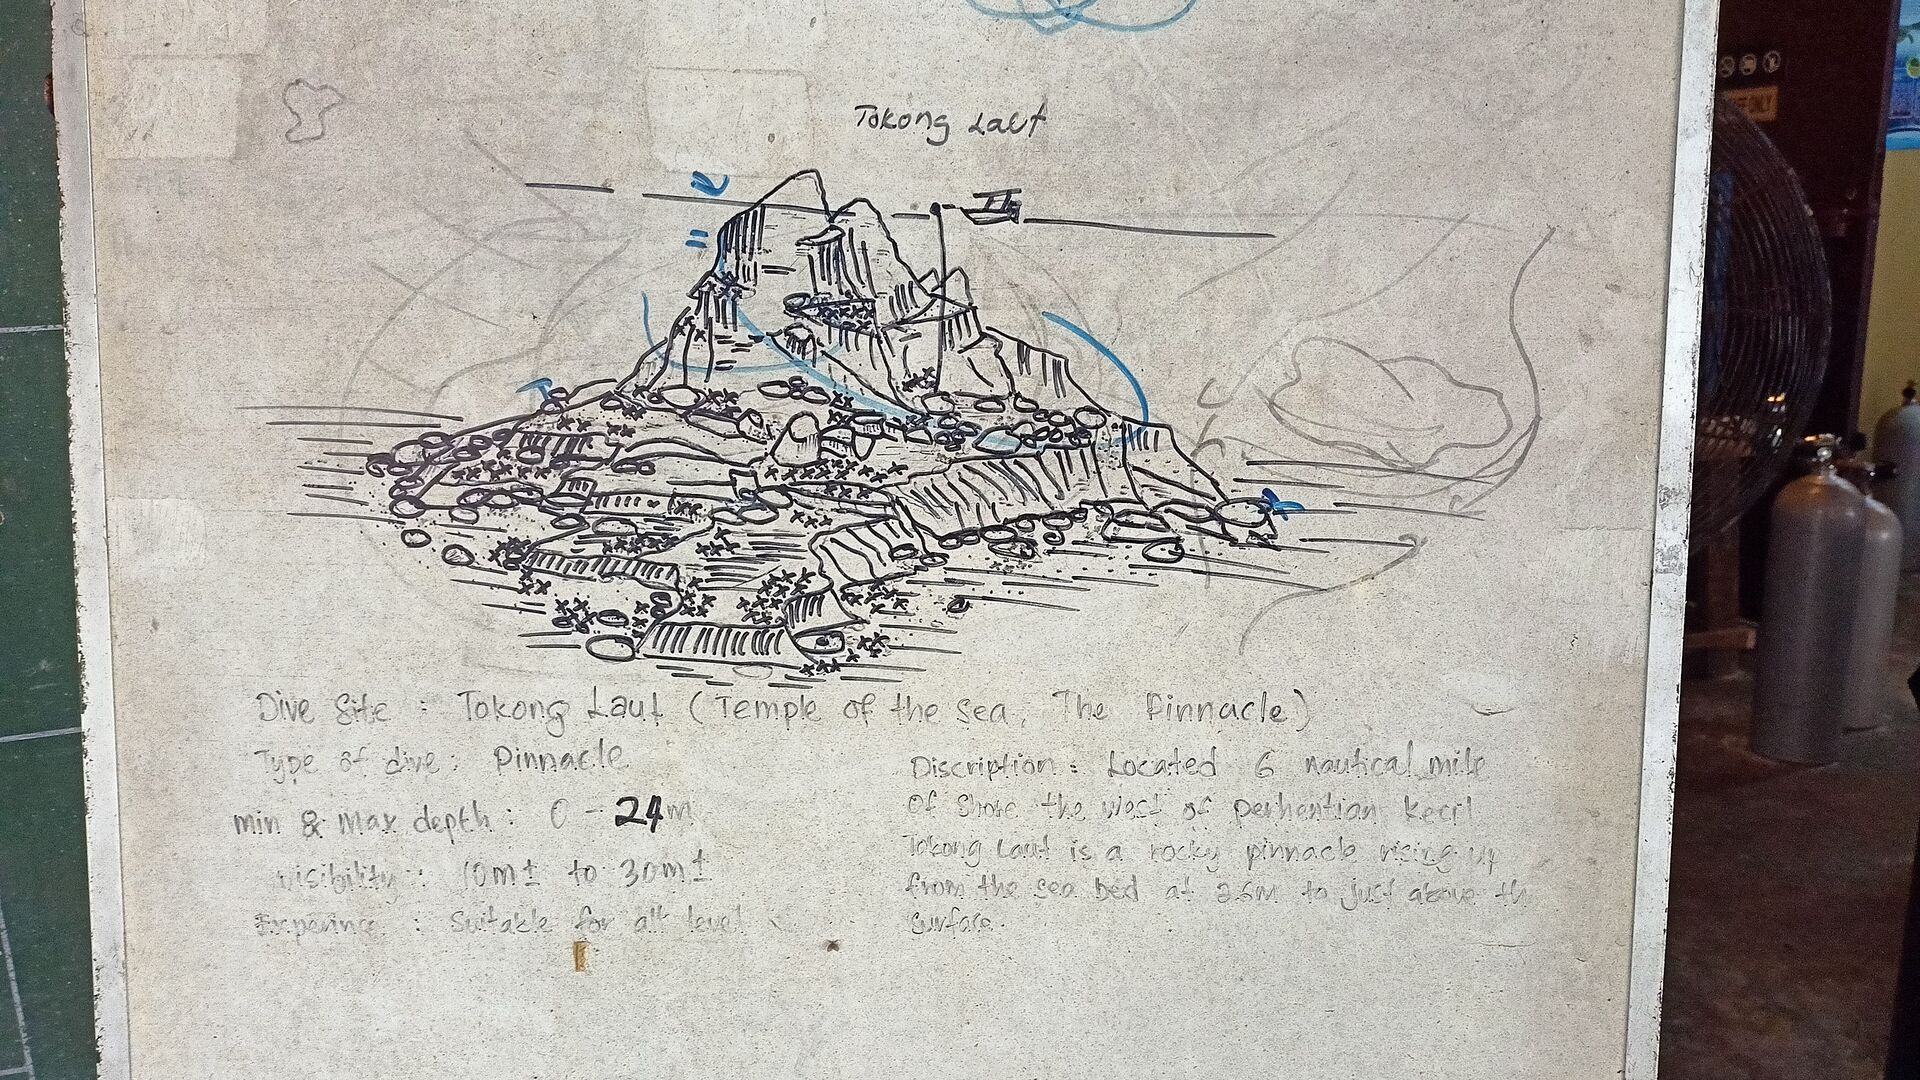 Tokong Laut
Dive Site : Tokong Laut (Temple of the sea, The Pinnacle)
Type of dive : Pinnacle
min & Max depth : 0 - 24m
visibility : 10m± to 30m±
: Suitable for all level
Discription : Located 6 nautical mile
of shore the west of perhentian kecil
Tokong Laut is a rocky pinnacle rising up
from the sea bed at m to just above th
surface.